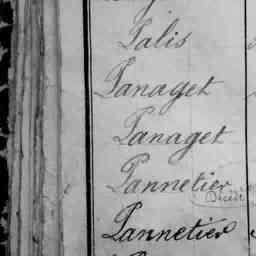 Palis
Panaget
Panaget
Pannetier
Décédé
Pannetier